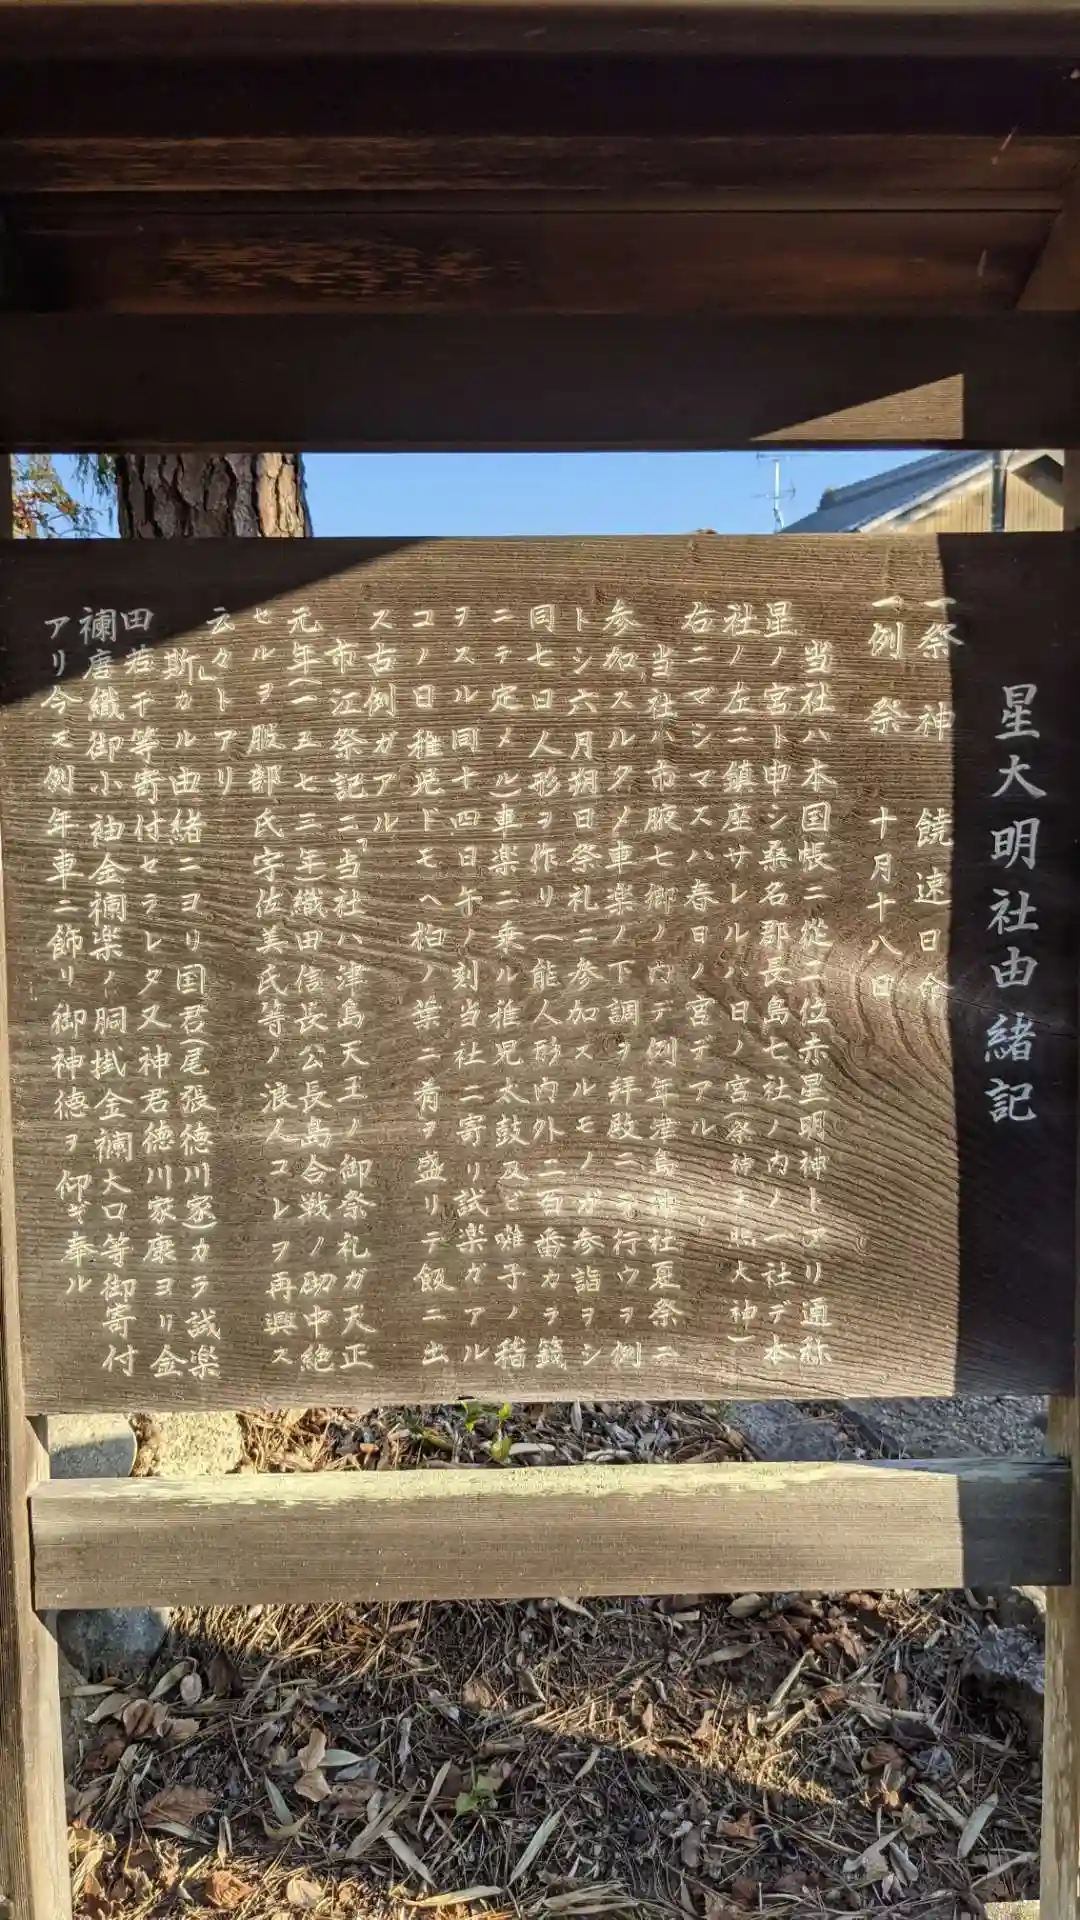 星大明社由緒記
一祭神 饒速日命
一例祭 十月十八日
当社ハ本国帳ニ従二位赤星明神トアリ通称
星ノ宮ト申シ桑名郡長島七社ノ内ノ一社デ本
社ノ左ニ鎮座サレルハ日ノ宮(祭神天照大神)
右ニマシマスハ春日ノ宮デアル
当社ハ市腋七郷ノ内デ例年津島神社夏祭ニ
参加スルタメ車楽ノ下調ヲ拝殿ニテ行ウヲ例
トシ六月朔日祭礼ニ参加スルモノガ参詣ヲシ
同七日人形ヲ作リ(能人形内外二百番カラ籤
ニテ定メル)車楽ニ乗ル稚児太鼓及ビ囃子ノ稽
ヲスル同十四日午ノ刻当社ニ寄リ試楽ガアル
コノ日稚児ドモヘ柏ノ葉ニ肴ヲ盛リテ飯ニ出
ス古例ガアル
市江祭記ニ「当社ハ津島天王ノ御祭礼ガ天正
元年(一五七三年織田信長公長島合戦ノ砌中絶
セルヲ服部氏宇佐美氏等ノ浪人コレヲ再興ス
云々トアリ
斯」カル由緒ニヨリ国君(尾張徳川家)カラ試楽
田若干等寄付セラレタ又神君徳川家康ヨリ金
襴唐織御小袖金襴楽ノ胴掛金襴大口等御寄付
アリ今モ例年車ニ飾リ御神徳ヲ仰ギ奉ル